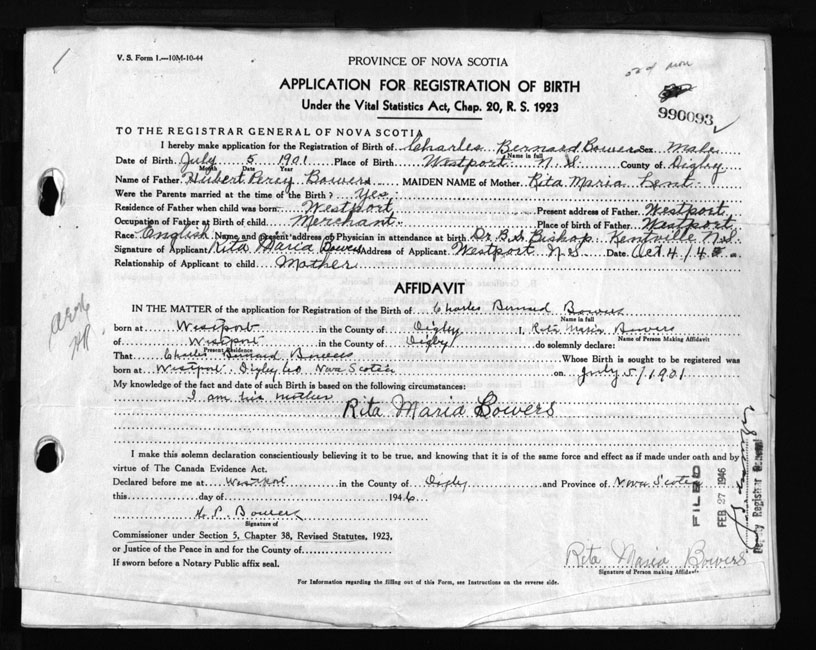 V. S. Form 1.—10M-10-44
PROVINCE OF NOVA SCOTIA
APPLICATION FOR REGISTRATION OF BIRTH
Under the Vital Statistics Act, Chap. 20, R. S. 1923
990093
TO THE REGISTRAR GENERAL OF NOVA SCOTIA
I hereby make application for the Registration of Birth of Charles Bernard Bowers Sex Male
Name in full
Date of Birth July 5 1901 Place of Birth Westport N. S. County of Digby
Month Date Year
Name of Father Hubert Percy Bowers MAIDEN NAME of Mother Rita Maria Lent
Were the Parents married at the time of the Birth? Yes
Residence of Father when child was born Westport Present address of Father Westport
Occupation of Father at Birth of child Merchant Place of birth of Father Westport
Race English Name and present address of Physician in attendance at birth Dr. B. S. Bishop Kentville N.S.
Signature of Applicant Rita Maria Bowers Address of Applicant Westport N.S. Date Oct 4/45
Relationship of Applicant to child Mother
AFFIDAVIT
IN THE MATTER of the application for Registration of the Birth of Charles Bernard Bowers
Name in full
born at Westport in the County of Digby I, Rita Maria Bowers
Name of Person Making Affidavit
of Westport in the County of Digby do solemnly declare:
Present Residence
That Charles Bernard Bowers Whose Birth is sought to be registered was
born at Westport Digby Co Nova Scotia on July 5/1901
My knowledge of the fact and date of such Birth is based on the following circumstances:
I am his mother
Rita Maria Bowers
I make this solemn declaration conscientiously believing it to be true, and knowing that it is of the same force and effect as if made under oath and by
virtue of The Canada Evidence Act.
Declared before me at Westport in the County of Digby and Province of Nova Scotia
this day of 1946
H. P. Bowers
Signature of
Commissioner under Section 5, Chapter 38, Revised Statutes, 1923,
or Justice of the Peace in and for the County of
If sworn before a Notary Public affix seal.
FILED
FEB 27 1946
Deputy Registrar General
Rita Maria Bowers
Signature of Person making Affidavit
For Information regarding the filling out of this Form, see Instructions on the reverse side.